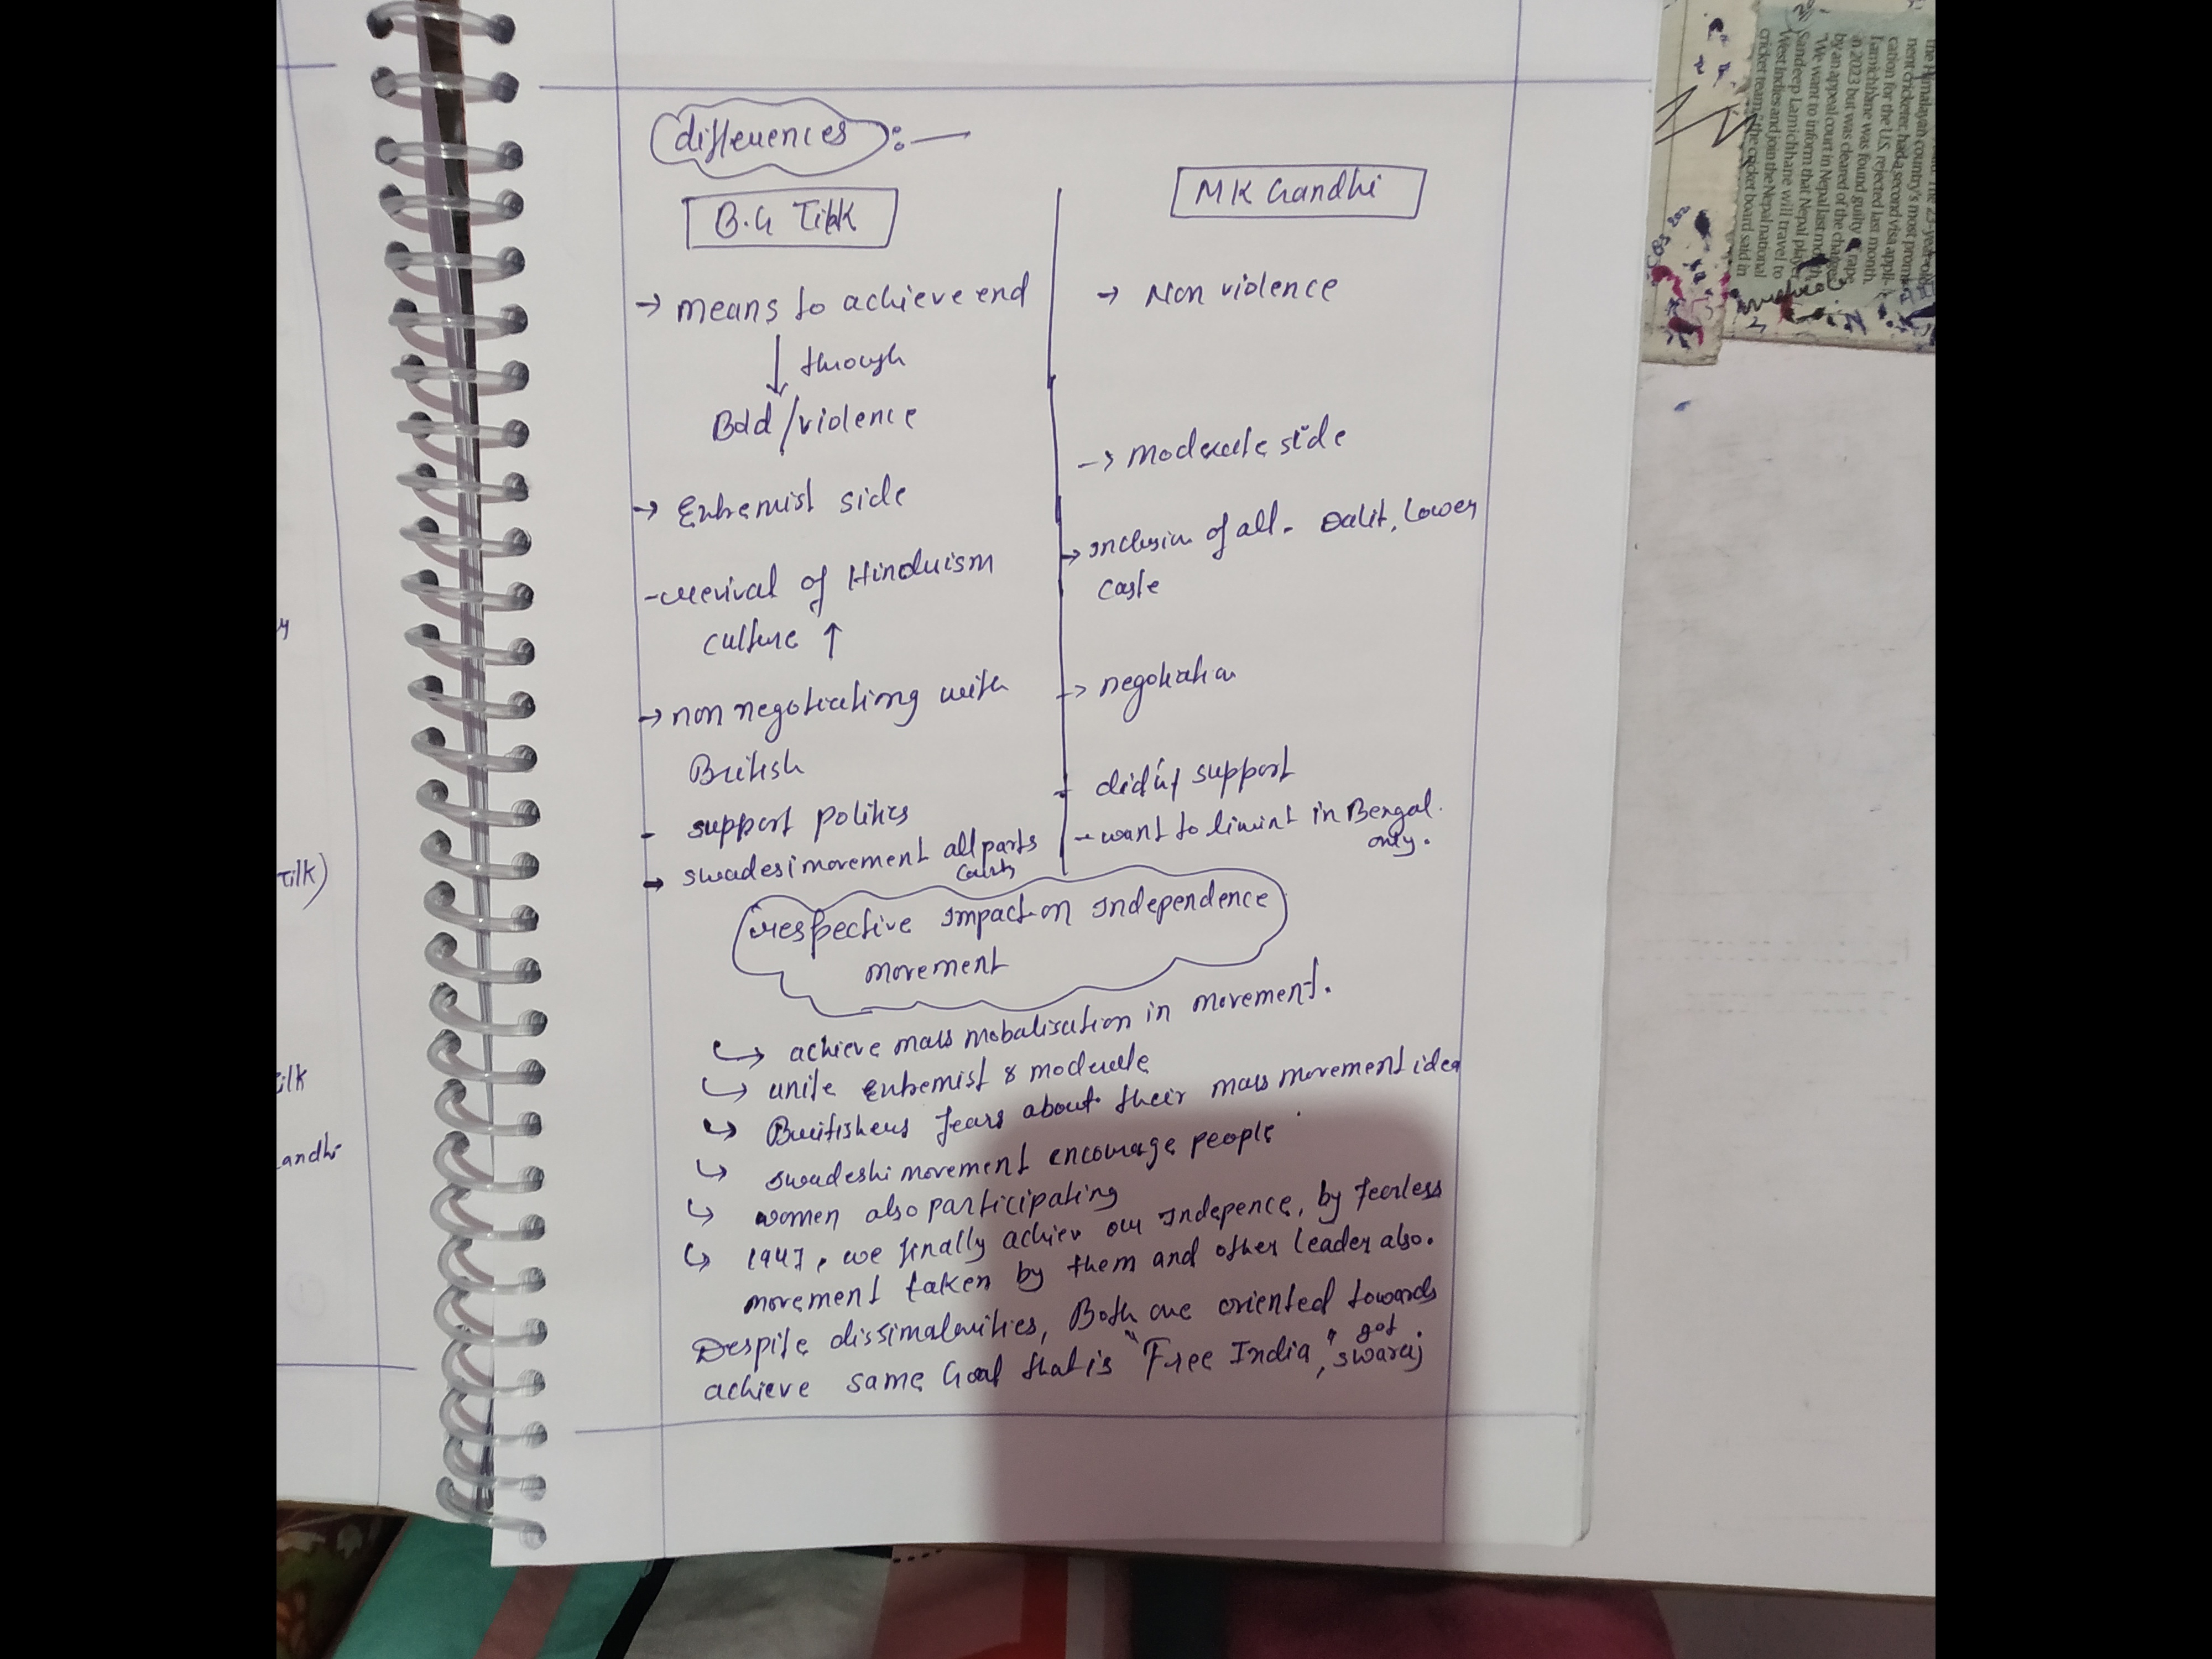 differences :—
B.G Tilk
MK Gandhi
→ means to achieve end
↓ through
Bad/violence
→ Extremist side
- revival of Hinduism
culture ↑
→ non negotiationg with
British
- support politics
→ swadesi movement all parts
→ Non violence
→ moderate side
→ Inclusion of all - Dalit, Lower
caste
→ negotiation
- did'nt support
- want to limint in Bengal
only.
respective impact on Independence
movement
↳ achieve mass mobalisation in movement.
↳ unite extremist & moderate
↳ Britishers fears about their mass movement idea
↳ swadeshi movement encourage people
↳ women also participating
↳ 1947, we finally achiev our Indepence, by fearless
movement taken by them and other leader also.
Despite dissimalarities, Both are oriented towards
achieve same Goal that is "Free India", got swaraj.
Tilk)
ilk
andhi
the Himalayan country's most promi-
nent cricketer, had a second visa appli-
cation for the U.S. rejected last month.
Lamichhane was found guilty of rape
in 2023 but was cleared of the charges
by an appeal court in Nepal last month.
"We want to inform that Nepal player
Sandeep Lamichhane will travel to
West Indies and join the Nepal national
cricket team," the cricket board said in